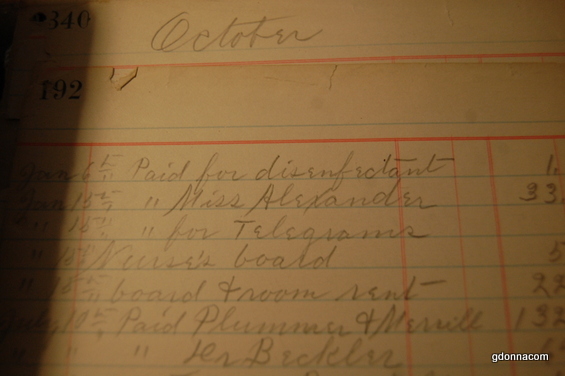 340
October
192
Jan 6th Paid for disenfectant 1.
Jan 15th " Miss Alexander 33.
" 15th " for Telegrams
" 15th Nurse's board 5
" 15th " board & room rent 22
July 10th Paid Plummer & Merrill 132
" " " Dr Beckler
gdonnacom